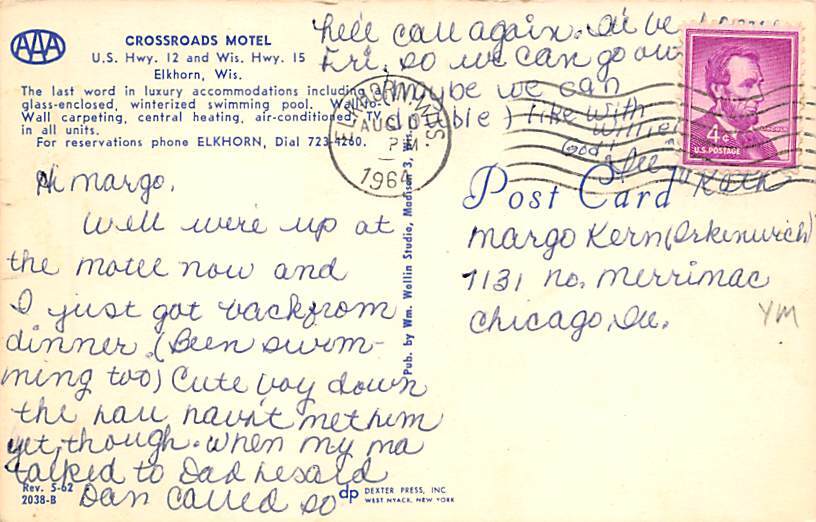 AAA
CROSSROADS MOTEL
U.S. Hwy. 12 and Wis. Hwy. 15
Elkhorn, Wis.
The last word in luxury accommodations including
glass-enclosed, winterized swimming pool. Wall-to-
Wall carpeting, central heating, air-conditioned, TV
in all units.
For reservations phone ELKHORN, Dial 723-4260.
Hi Margo,
Well were up at
the motel now and
I just got back from
dinner. (Been swim-
ming too) Cute boy down
the hall havn't met him
yet, though. When my ma
talked to Dad he said
Dan called so
he'll call again. I'll be home
Fri. so we can go out
(maybe we can
double) like with
Willie
God!
Kath
ELKHORN, WIS.
AUG 10
PM
1964
4¢
U.S. POSTAGE
Post Card
Margo Kern (Orkenwich)
7131 no. Merrimac
Chicago, Ill.
YM
Pub. by Wm. Wollin Studio, Madison 3, Wis.
Rev. 5-62
2038-B
dp DEXTER PRESS, INC
WEST NYACK, NEW YORK